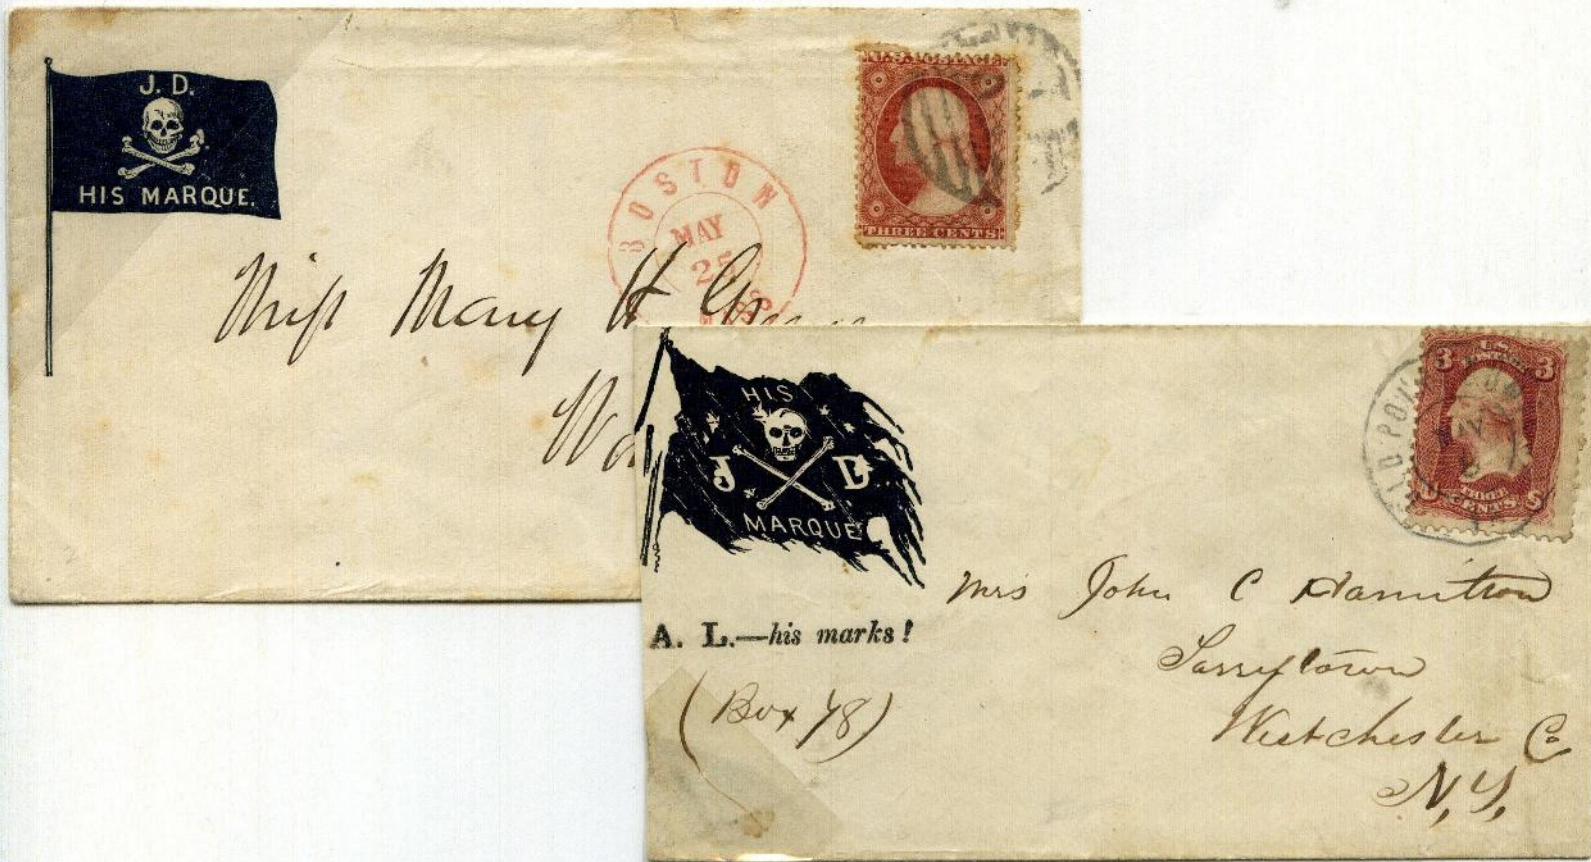 J. D.
HIS MARQUE.
U.S. POSTAGE
THREE CENTS
BOSTON
MAY
25
Miss Mary H
HIS
J D
MARQUE
A. L.—his marks!
(Box 78)
U.S.
POSTAGE
3 3
THREE
CENTS
Mrs John C Hamilton
Tarrytown
Westchester Co
N,Y,